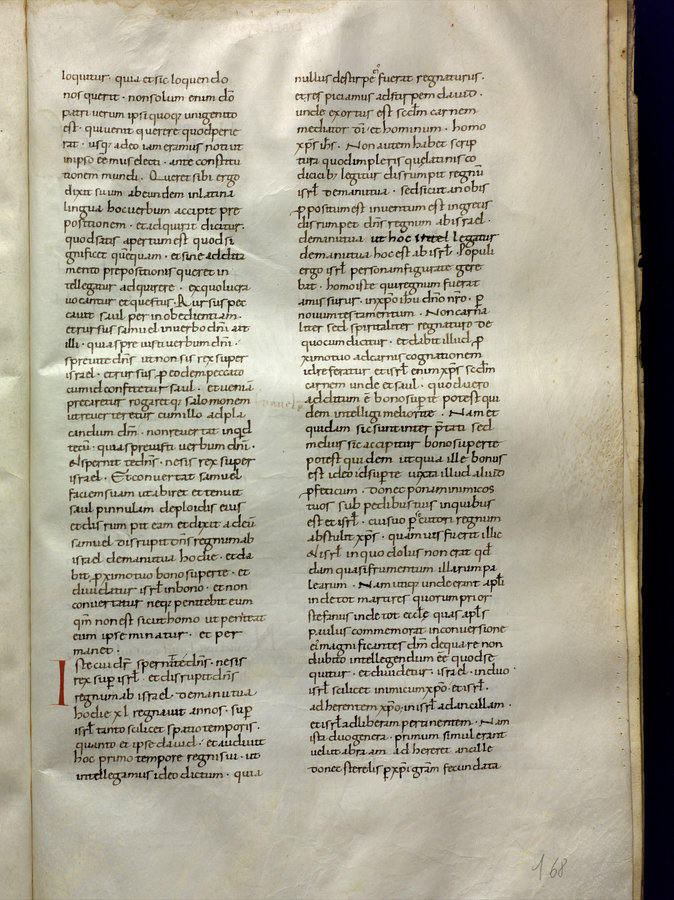 loquitur · quia et sic loquendo
nos querit · non solum enim dō
patri uerum ipsi quoq; unigenito
est · qui uenit querere quod perie
rat · usq; adeo iam eramus notati
in ipso ee mus electi · ante constitu
tionem mundi · Queret sibi ergo
dixit suum ab eundem in latina
lingua hoc uerbum accipit pre
positionem · et adquirit dicitur ·
quod satis apertum est quod si
gnificet quequam · et sine addita
mento prepositionis queret in
tellegatur adquirere · ex quo lucra
uocantur et questus · Rursus pec
cauit saul per inobedientiam ·
et rursus samuel in uerbo dn̄i ait
illi · quia spreuisti uerbum dn̄i ·
spreuit te dn̄s ut non sis rex super
israel · et rursus ꝑ eodem peccato
cum id confitetur saul · et ueniā
precaretur rogaretq; salomonem
ut reuerteretur cum illo ad pla
candum dn̄m · non reuertar inqd
tecū · quia spreuisti uerbum dn̄i ·
& spernit te dn̄s · ne sis rex super
israel · Et conuertat samuel
faciem suam ut abiret et tenuit
saul pinnulam deploidis eius
et disrumpit eam et dixit ad eū
samuel disrupit dn̄s regnum ab
israel de manu tua hodie · et da
bit ꝓximo tuo bono super te · et
diuidatur isrl̄ in bono · et non
conuertatur neq; penitebit eum
qm̄ non est sicut homo ut peniteat
eum ipse minatur · et per
manet ·
Iste cui dr̄ spernit te dn̄s · ne sis
rex sup isrl̄ · et disrupit dn̄s
regnum ab israel · de manu tua
hodie xl regnauit annos · sup
isrl̄ tanto scilicet spatio temporis ·
quanto et ipse dauid · et audiuit
hoc primo tempore regni sui · ut
intellegamus ideo dictum · quia
nullus de stirpe fuerat regnaturus ·
et respiciamus ad stirpem dauid ·
unde exortus est scd̄m carnem
mediator dī et hominum · homo
xp̄s ih̄s · Non autem habet scrip
tura quod in plerisque latinis co
dicib; legitur disrumpit regnū
isrl̄ de manu tua · sed sicut a nobis
ꝓpositum est inuentum est in grecis
disrumpet dn̄s regnum ab israel ·
de manu tua ut hoc intellegatur
de manu tua hoc est ab isrl̄ · Populi
ergo isrl̄ personam figurate gere
bat · homo iste qui regnum fuerat
amissurus · in xp̄o ih̄u dn̄o nr̄o · ꝑ
nouum testamentum · Non carna
liter sed spiritaliter regnaturo de
quo cum dicitur · et dabit illud ꝓ
ximo tuo ad carnis cognationem
id refertur et isrl̄ enim xp̄s scd̄m
carnem unde et saul · quod uero
additum ē bono super te potest qui
dem intelligi meliori te · Nam et
quidam sic sunt interp̄tati sed
melius sic accipitur bono super te
potest quidem ut quia ille bonus
est ideo id super te iuxta illud aliud
ꝓfeticum · donec ponam inimicos
tuos sub pedibus tuis in quibus
est et isrl̄ · cui suo ꝑsecutori regnum
abstulit xp̄s · quamuis fuerit illic
& isrl̄ in quo dolus non erat qd̄
dam quasi frumentum illarum pa
learum · Nam utiq; unde erant apl̄i
inde tot martires quorum prior
stefanus inde tot eccle quas apl̄s
paulus commemorat in conuersione
ei magnificantes dm̄ de qua re non
dubito intellegendum ee quod se
quitur · et diuidetur · israel · in duo ·
isrl̄ scilicet inimicum xp̄o · et isrl̄ ·
adherentem xp̄o, in isrl̄ ad ancillam ·
et isrl̄ ad liberam pertinentem · Nam
ista duo genera · primum simul erant
uelut abraam adhereret ancille
donec sterelis ꝑ xp̄i gram̄ fecundata
168